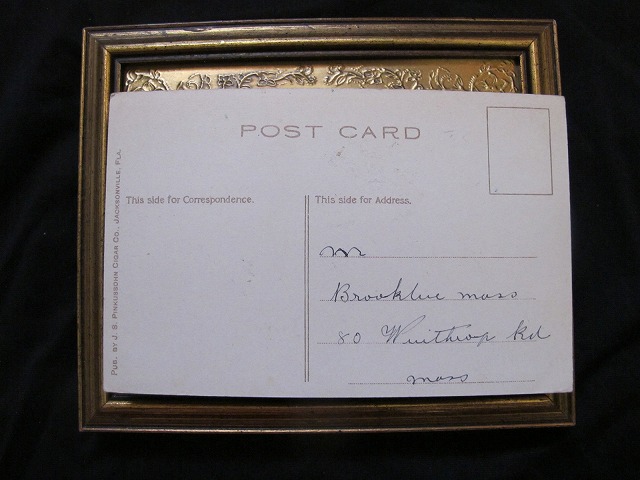 POST CARD
This side for Correspondence.
This side for Address.
Mr
Brooklie mass
80 Winthrop Rd
mass
PUB. BY J. S. PINKUSSOHN CIGAR CO., JACKSONVILLE, FLA.